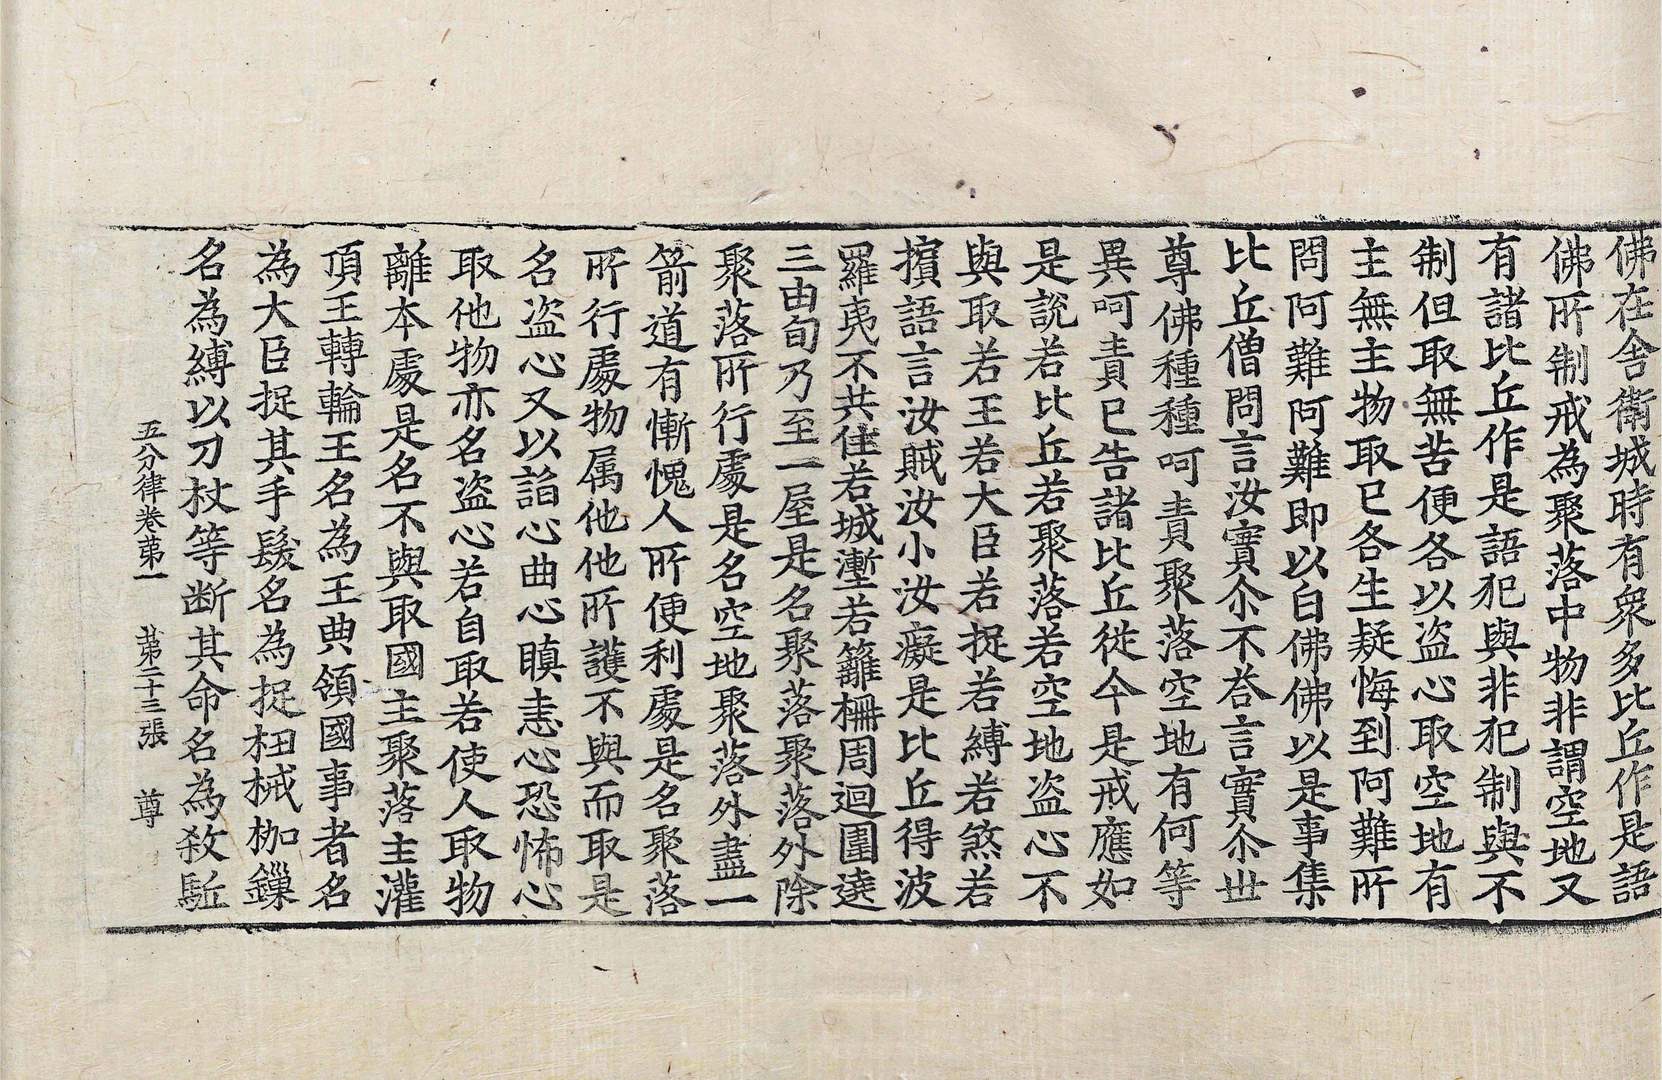 佛在舍衛城時有衆多比丘作是語
佛所制戒為聚落中物非謂空地又
有諸比丘作是語犯與非犯制與不
制但取無苦便各以盜心取空地有
主無主物取已各生疑悔到阿難所
問阿難阿難即以白佛佛以是事集
比丘僧問言汝實尒不荅言實尒世
尊佛種種呵責聚落空地有何等
異呵責已告諸比丘從今是戒應如
是說若比丘若聚落若空地盜心不
與取若王若大臣若捉若縛若煞若
擯語言汝賊汝小汝癡是比丘得波
羅夷不共住若城壍若籬柵周迴圍遶
三由旬乃至一屋是名聚落聚落外除
聚落所行處是名空地聚落外盡一
箭道有慚愧人所便利處是名聚落
所行處物属他他所護不與而取是
名盜心又以諂心曲心瞋恚心恐怖心
取他物亦名盜心若自取若使人取物
離本處是名不與取國主聚落主灌
頂王轉輪王名為王典領國事者名
為大臣捉其手髮名為捉杻械枷鏁
名為縛以刀杖等断其命名為殺駈
五分律卷苐一　苐二十三張　尊